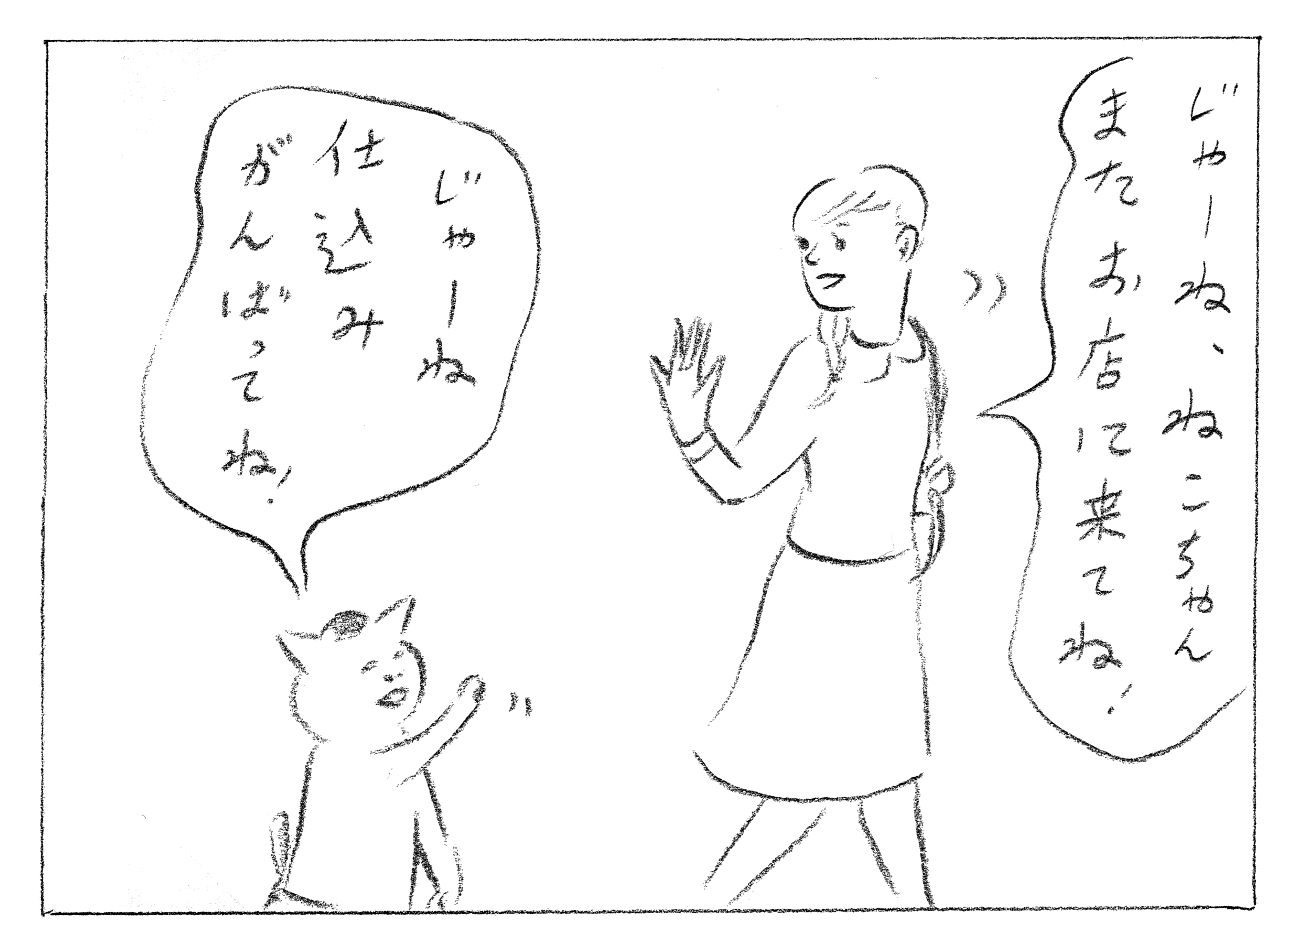 じゃーね、ねこちゃん
またお店に来てね!
じゃーね
仕込み
がんばってね!